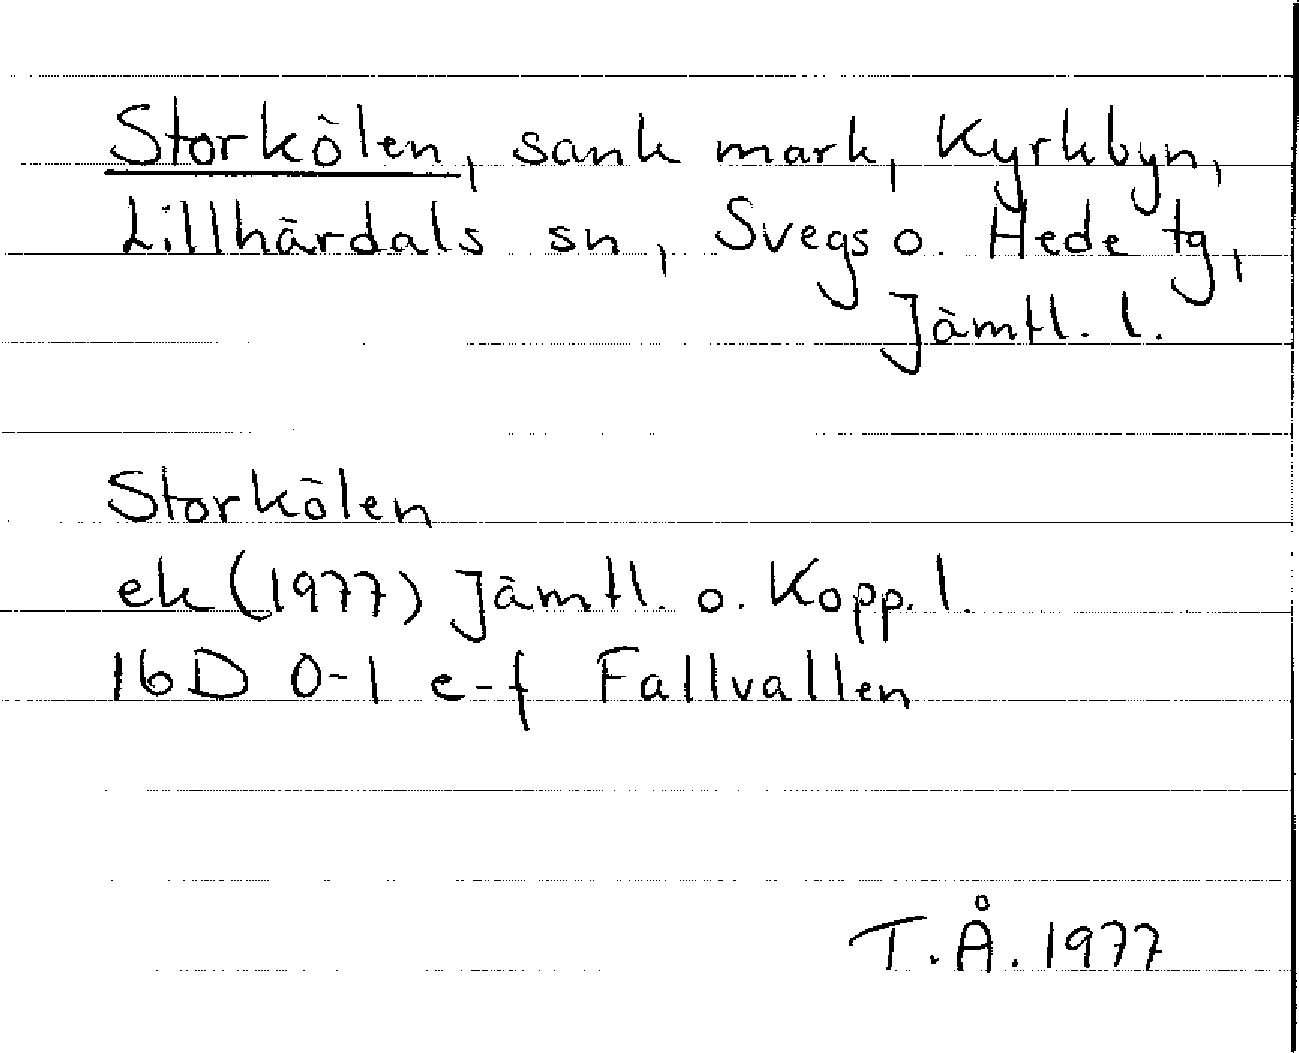 Storkölen, sank mark, Kyrkbyn,
Lillhärdals sn, Svegs o. Hede tg,
Jämtl. l.
Storkölen
ek (1977) Jämtl. o. Kopp. l.
16D 0-1 e-f Fallvallen
T.Å. 1977